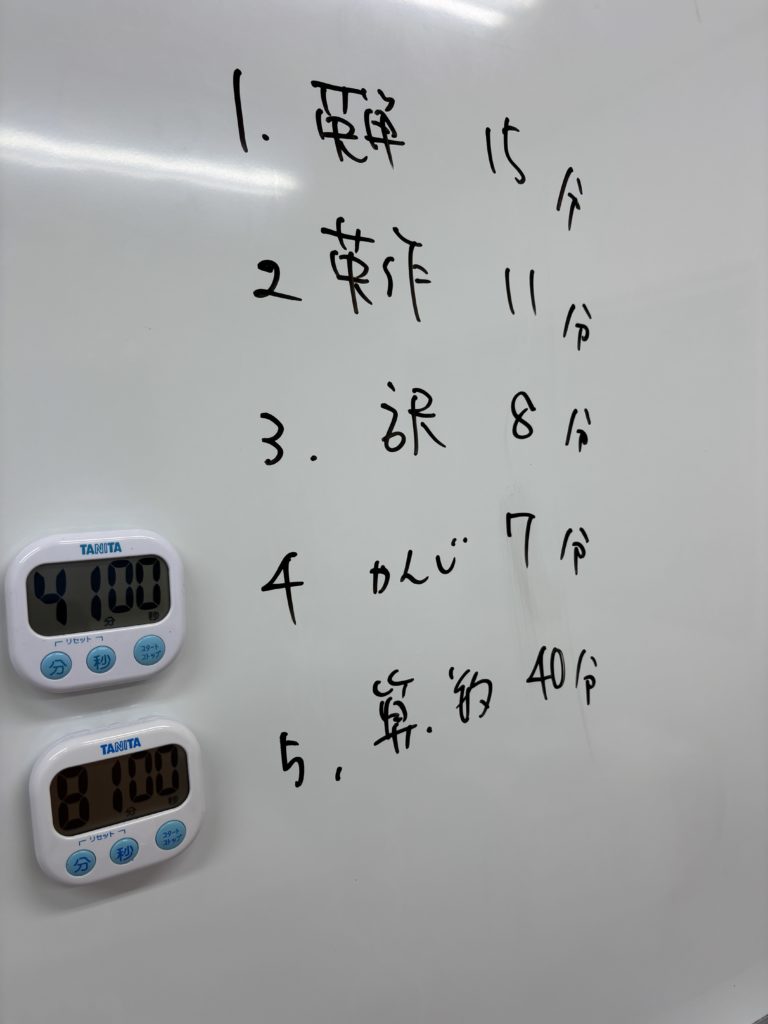 1. 英単 15分
2 英作 11分
3. 訳 8分
4 かんじ 7分
5. 算.的 40分
TANITA
41 00
分 秒
リセット
分 秒 スタート ストップ
TANITA
81 00
分 秒
リセット
分 秒 スタート ストップ